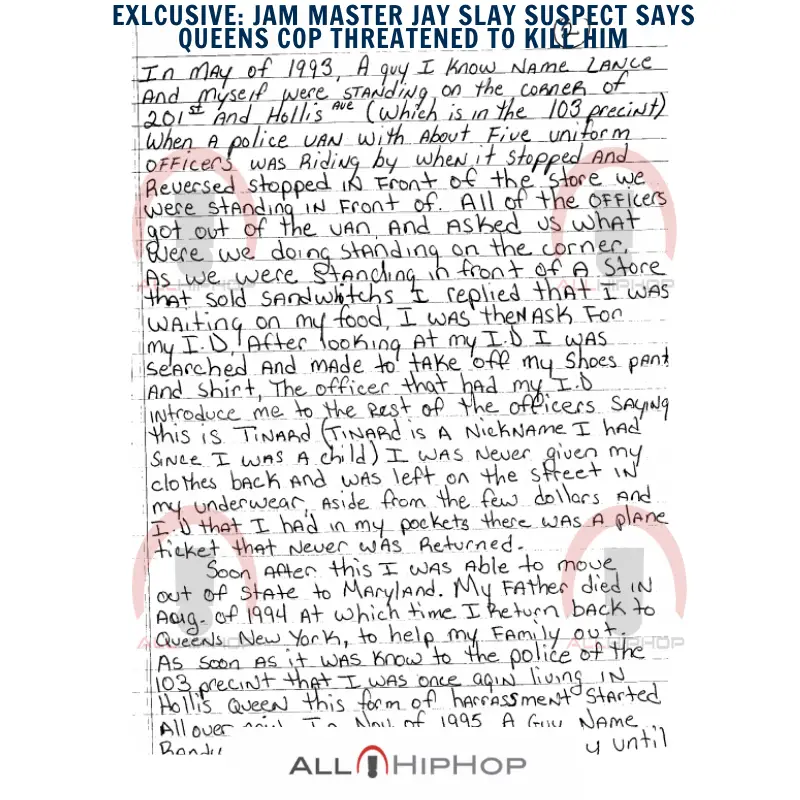 EXLCUSIVE: JAM MASTER JAY SLAY SUSPECT SAYS
QUEENS COP THREATENED TO KILL HIM
In MAY of 1993, A guy I know NAME LANCE
And myself were STANDING on the CORNER of
201st And Hollis Ave (which is in the 103 precint)
When A police VAN with About Five uniform
OFFicers was Riding by when it stopped And
Reversed stopped IN Front of the store we
were standing IN Front of. All of the OFFicers
got out of the VAN And Asked us what
were we doing standing on the corner.
As we were Standing in front of A Store
that sold sandwitchs I replied that I was
waiting on my food, I was then Ask For
my I.D, After looking At my I.D I was
Searched And made to take off my shoes pant
And shirt, The officer that had my I.D
introduce me to the Rest of the officers saying
this is TINARD (TINARD is A Nickname I had
since I was A child) I was never given my
clothes back And was left on the street IN
my underwear, Aside from the few dollars And
I.D that I had in my pockets there was A plane
ticket that Never was Returned.
Soon After this I was Able to move
out of State to Maryland. My Father died IN
Aug. of 1994 At which time I Return back to
Queens, New York, to help my Family out.
As soon As it was know to the police of the
103 precint that I was once agin living IN
Hollis Queen this form of harrassment Started
All over of 1995 A Guy Name
until
ALLHIPHOP
ALLHIPHOP
ALLHIPHOP
ALLHIPHOP
ALLHIPHOP